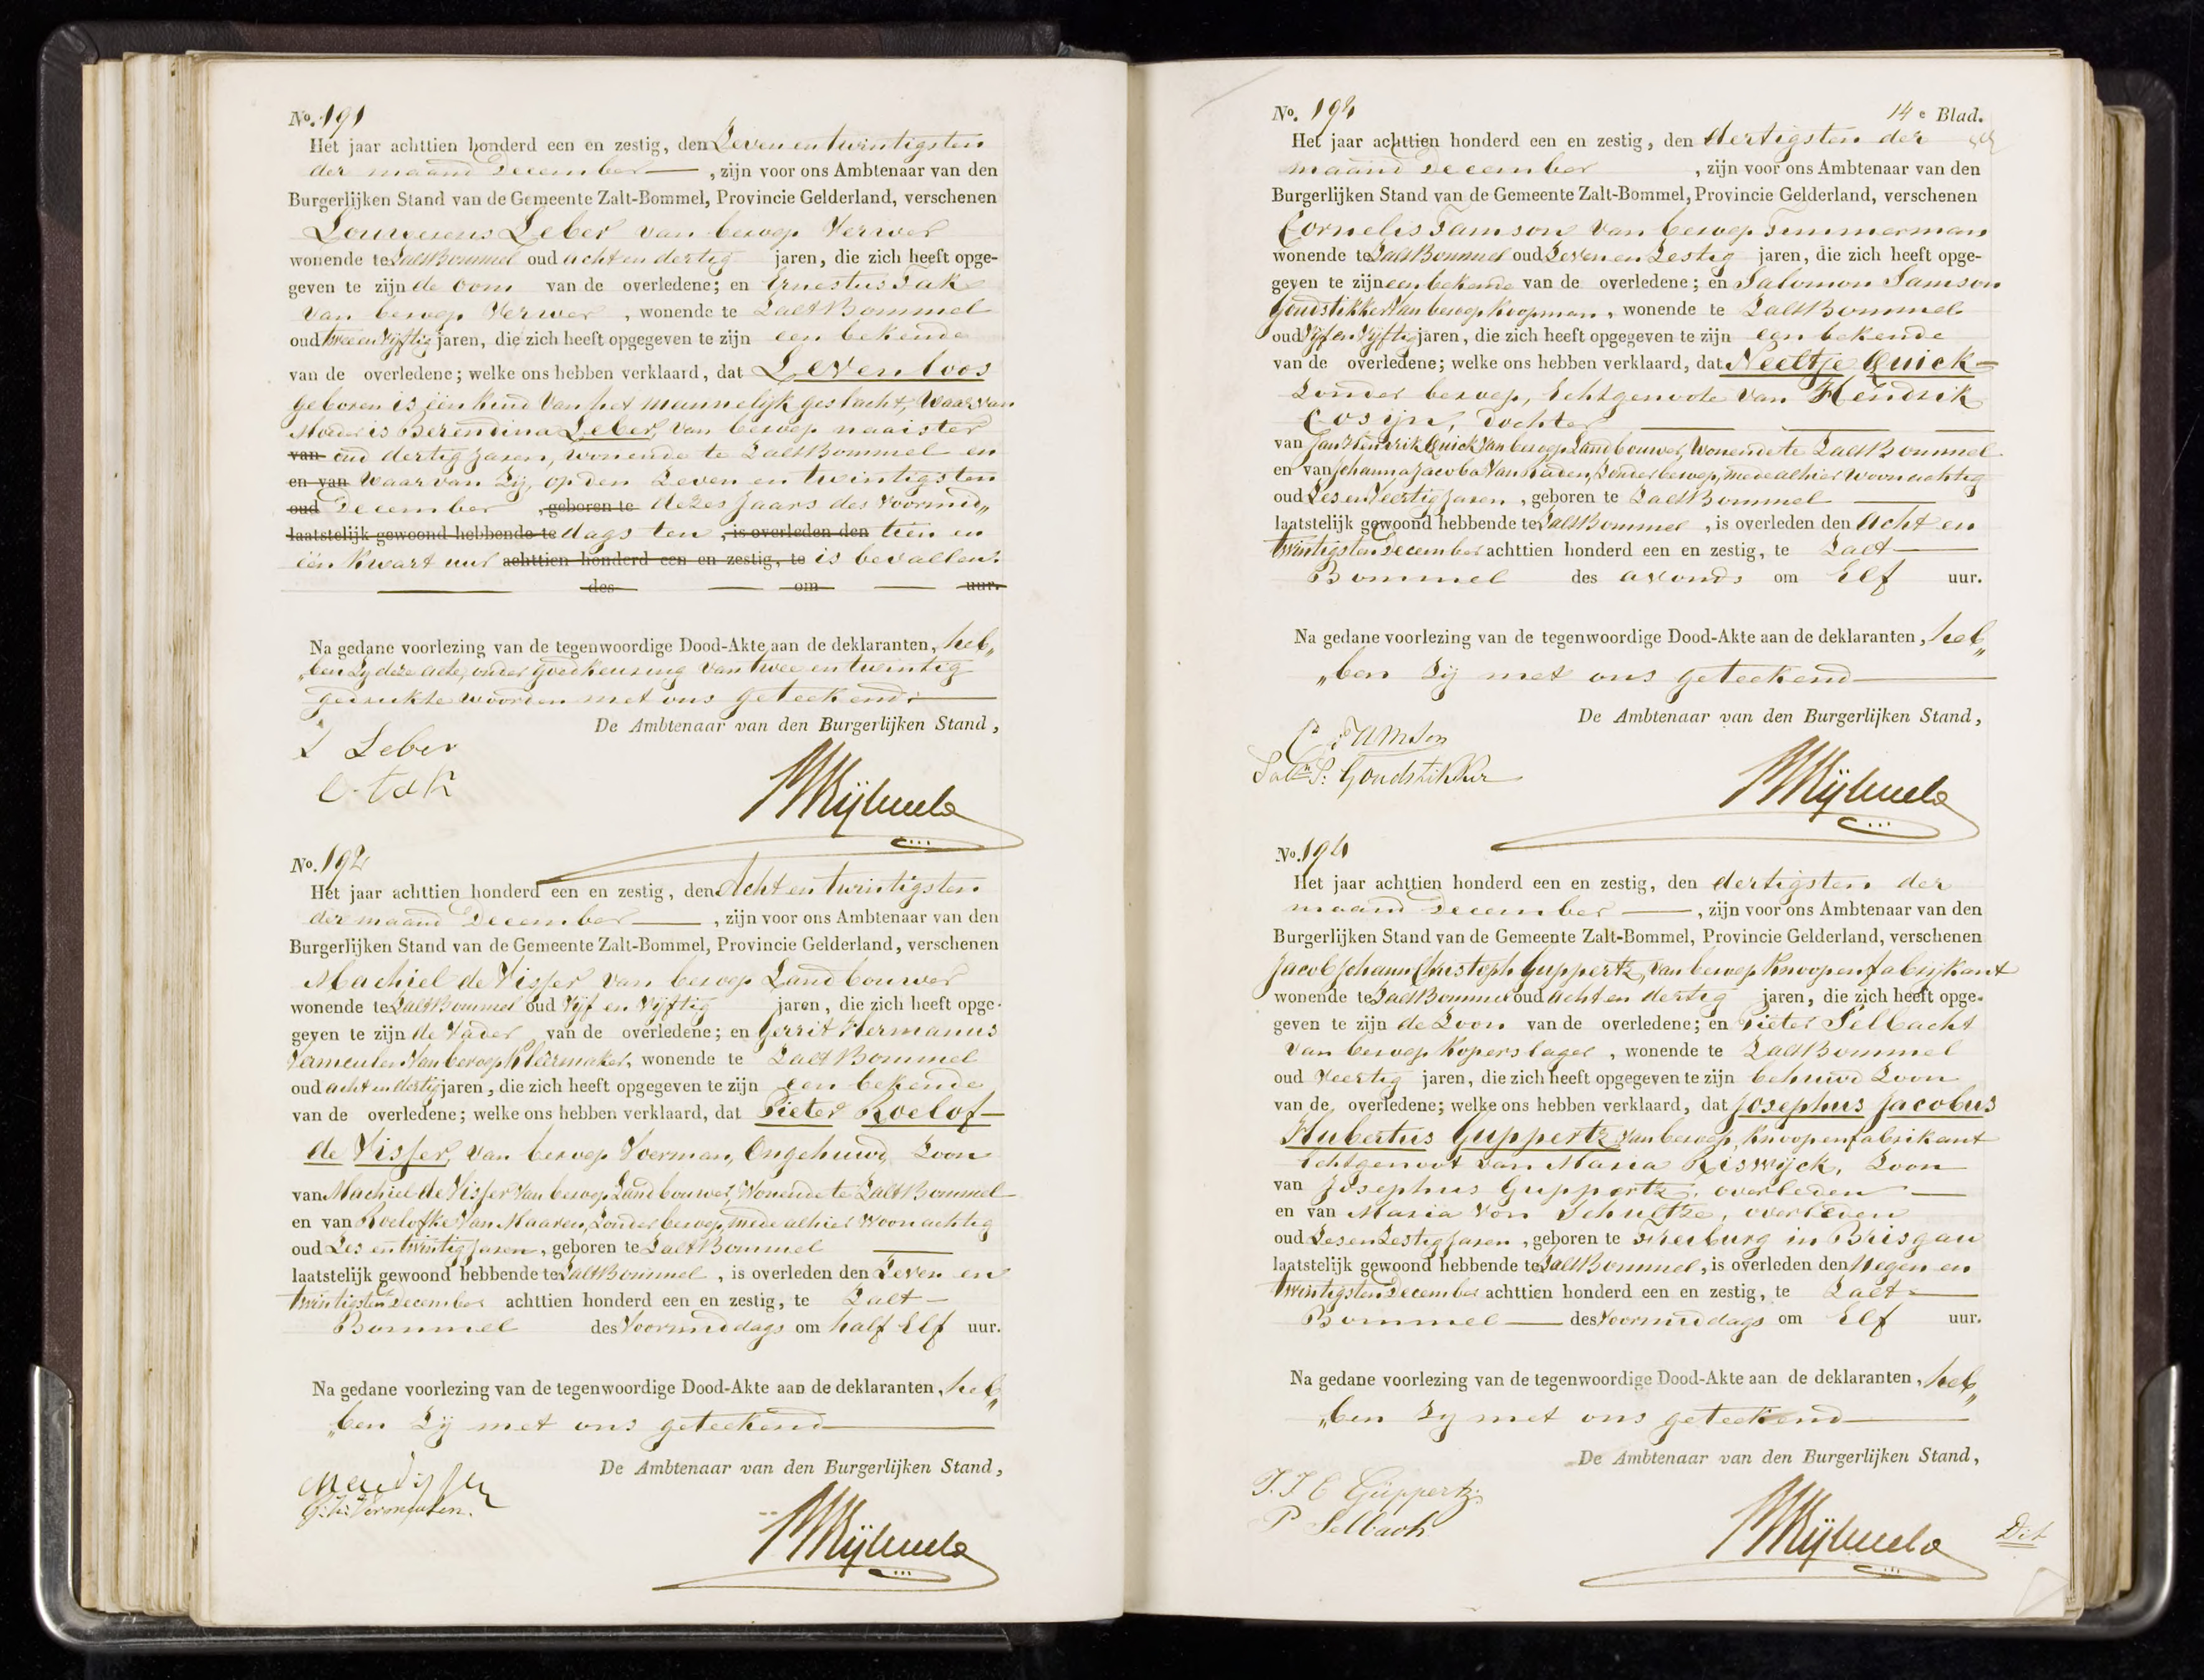 No. 191
Het jaar achttien honderd een en zestig, den Zeven en twintigsten
der maand December — , zijn voor ons Ambtenaar van den
Burgerlijken Stand van de Gemeente Zalt-Bommel, Provincie Gelderland, verschenen
Leber van beroep Verwer
wonende te ZaltBommel oud acht en dertig jaren, die zich heeft opge-
geven te zijn de oom van de overledene; en Ernestus Tak
van beroep Verwer , wonende te ZaltBommel
oud twee en Vijftig jaren, die zich heeft opgegeven te zijn een bekende
van de overledene; welke ons hebben verklaard, dat Levenloos
geboren is één kind van het mannelijk geslacht, waarvan
Moeder is Berendina Leber, van beroep naaister
van oud dertig Jaren, wonende te ZaltBommel en
en van waarvan Zij, op den Zeven en twintigsten
oud December , geboren te dezes Jaars des Voormid„
laatstelijk gewoond hebbende te dags ten , is overleden den tien en
één kwart uur achttien honderd een en zestig, te is bevallen.
— des — om — uur.
Na gedane voorlezing van de tegenwoordige Dood-Akte aan de deklaranten, heb„
„ben Zy deze acte, onder goedkeuring van twee en twintig
gedrukte woorden met ons geteekend. —
De Ambtenaar van den Burgerlijken Stand,
L Leber
E. tak
No. 192
Het jaar achttien honderd een en zestig, den Acht en twintigsten
der maand December — , zijn voor ons Ambtenaar van den
Burgerlijken Stand van de Gemeente Zalt-Bommel, Provincie Gelderland, verschenen
Machiel de Visser van beroep Landbouwer
wonende te ZaltBommel oud Vijf en Vijftig jaren, die zich heeft opge-
geven te zijn de Vader van de overledene; en Gerrit Hermanus
Vermeulen van beroep Kleermaker, wonende te ZaltBommel
oud acht en dertig jaren, die zich heeft opgegeven te zijn een bekende
van de overledene; welke ons hebben verklaard, dat Pieter Roelof —
de Visser, van beroep Voerman, Ongehuwd, Zoon
van Machiel de Visser van beroep Landbouwer, Wonende te ZaltBommel
en van Roelofke van Maaren, Zonder beroep, mede alhier Woonachtig
oud Zes en twintig Jaren, geboren te ZaltBommel —
laatstelijk gewoond hebbende te ZaltBommel , is overleden den Zeven en
twintigsten December achttien honderd een en zestig, te Zalt —
Bommel des Voormiddags om half Elf uur.
Na gedane voorlezing van de tegenwoordige Dood-Akte aan de deklaranten, heb„
„ben Zij met ons geteekend —
De Ambtenaar van den Burgerlijken Stand,
M de Visser
G: H: Vermeulen.
No. 193
14e Blad.
Het jaar achttien honderd een en zestig, den dertigsten der
maand December , zijn voor ons Ambtenaar van den
Burgerlijken Stand van de Gemeente Zalt-Bommel, Provincie Gelderland, verschenen
Cornelis Tamson van beroep Timmerman
wonende te ZaltBommel oud Zeven en Zestig jaren, die zich heeft opge-
geven te zijn een bekende van de overledene; en Salomon Samson
Goudstikker van beroep Koopman, wonende te ZaltBommel
oud Vijf en Vijftig jaren, die zich heeft opgegeven te zijn een bekende
van de overledene; welke ons hebben verklaard, dat Neeltje Quick —
Zonder beroep, Echtgenoote van Hendrik
Cosijn, dochter —
van Jan Hendrik Quick van beroep Landbouwer, Wonende te ZaltBommel
en van Johanna Jacoba van Heden, Zonder beroep, mede alhier woonachtig
oud Zes en Veertig Jaren, geboren te ZaltBommel —
laatstelijk gewoond hebbende te ZaltBommel , is overleden den Acht en
twintigsten December achttien honderd een en zestig, te Zalt —
Bommel des avonds om Elf uur.
Na gedane voorlezing van de tegenwoordige Dood-Akte aan de deklaranten, heb„
„ben Zij met ons geteekend —
De Ambtenaar van den Burgerlijken Stand,
Cs Tamson
Saln S: Goudstikker
No. 194
Het jaar achttien honderd een en zestig, den dertigsten der
maand December — , zijn voor ons Ambtenaar van den
Burgerlijken Stand van de Gemeente Zalt-Bommel, Provincie Gelderland, verschenen
Jacob Johann Christoph Guppertz, van beroep Knoopenfabrijkant
wonende te ZaltBommel oud acht en dertig jaren, die zich heeft opge-
geven te zijn de Zoon van de overledene; en Pieter Selbacht
van beroep Koperslager , wonende te ZaltBommel
oud Veertig jaren, die zich heeft opgegeven te zijn behuwd Zoon
van de overledene; welke ons hebben verklaard, dat Josephus Jacobus
Hubertus Guppertz van beroep, Knoopenfabrikant
Echtgenoot van Maria Riswijck, Zoon
van Josephus Guppertz, overleden —
en van Maria von Schultze, overleden
oud Zes en Zestig Jaren , geboren te Freiburg in Brisgau
laatstelijk gewoond hebbende te ZaltBommel, is overleden den Negen en
twintigsten December achttien honderd een en zestig, te Zalt —
Bommel — des Voormiddags om Elf uur.
Na gedane voorlezing van de tegenwoordige Dood-Akte aan de deklaranten, heb„
„ben Zy met ons geteekend —
De Ambtenaar van den Burgerlijken Stand,
J. J C Güppertz.
P Selbach
Dit